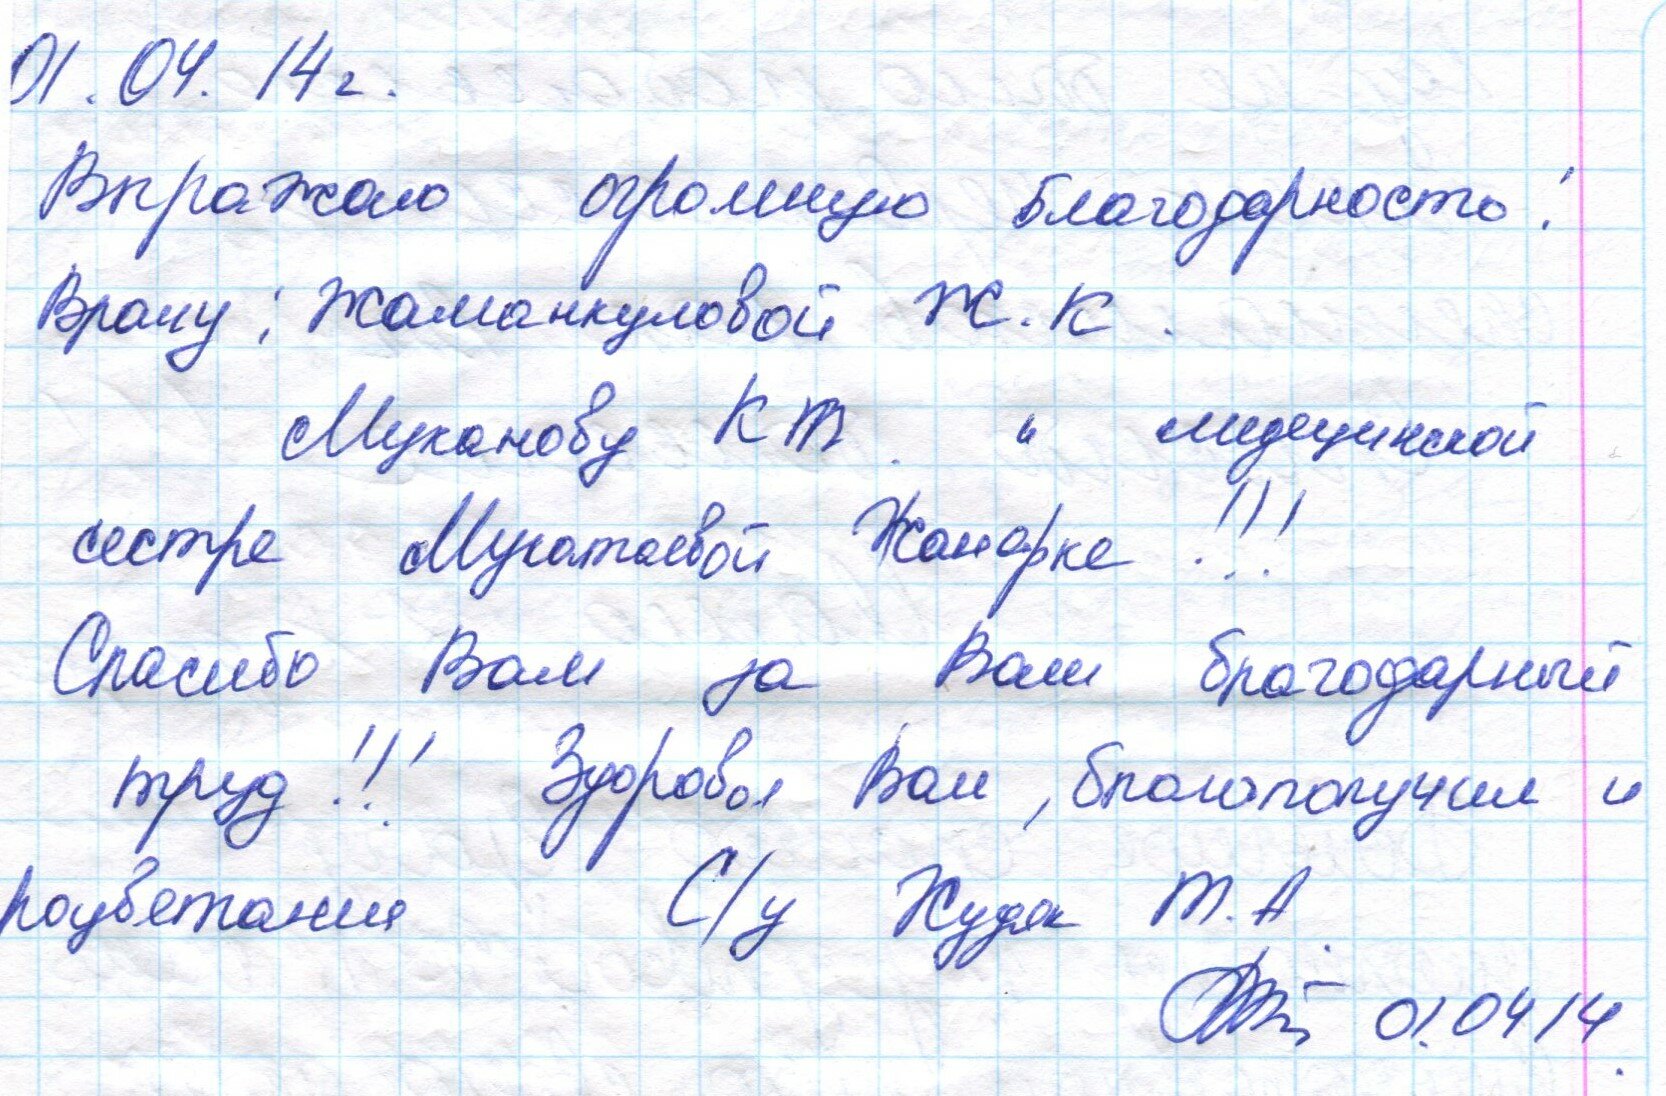 01.04.14г.
Выражаю огромную благодарность!
Врачу: Жаманкуловой Ж.К.
Муканову К Т. и медецинской
сестре Мукатаевой Жанарке !!!
Спасибо Вам за Ваш благодарный
труд !!! Здоровья Вам, благополучия и
роцветания С/у Худяк Т.А.
01.04 14.